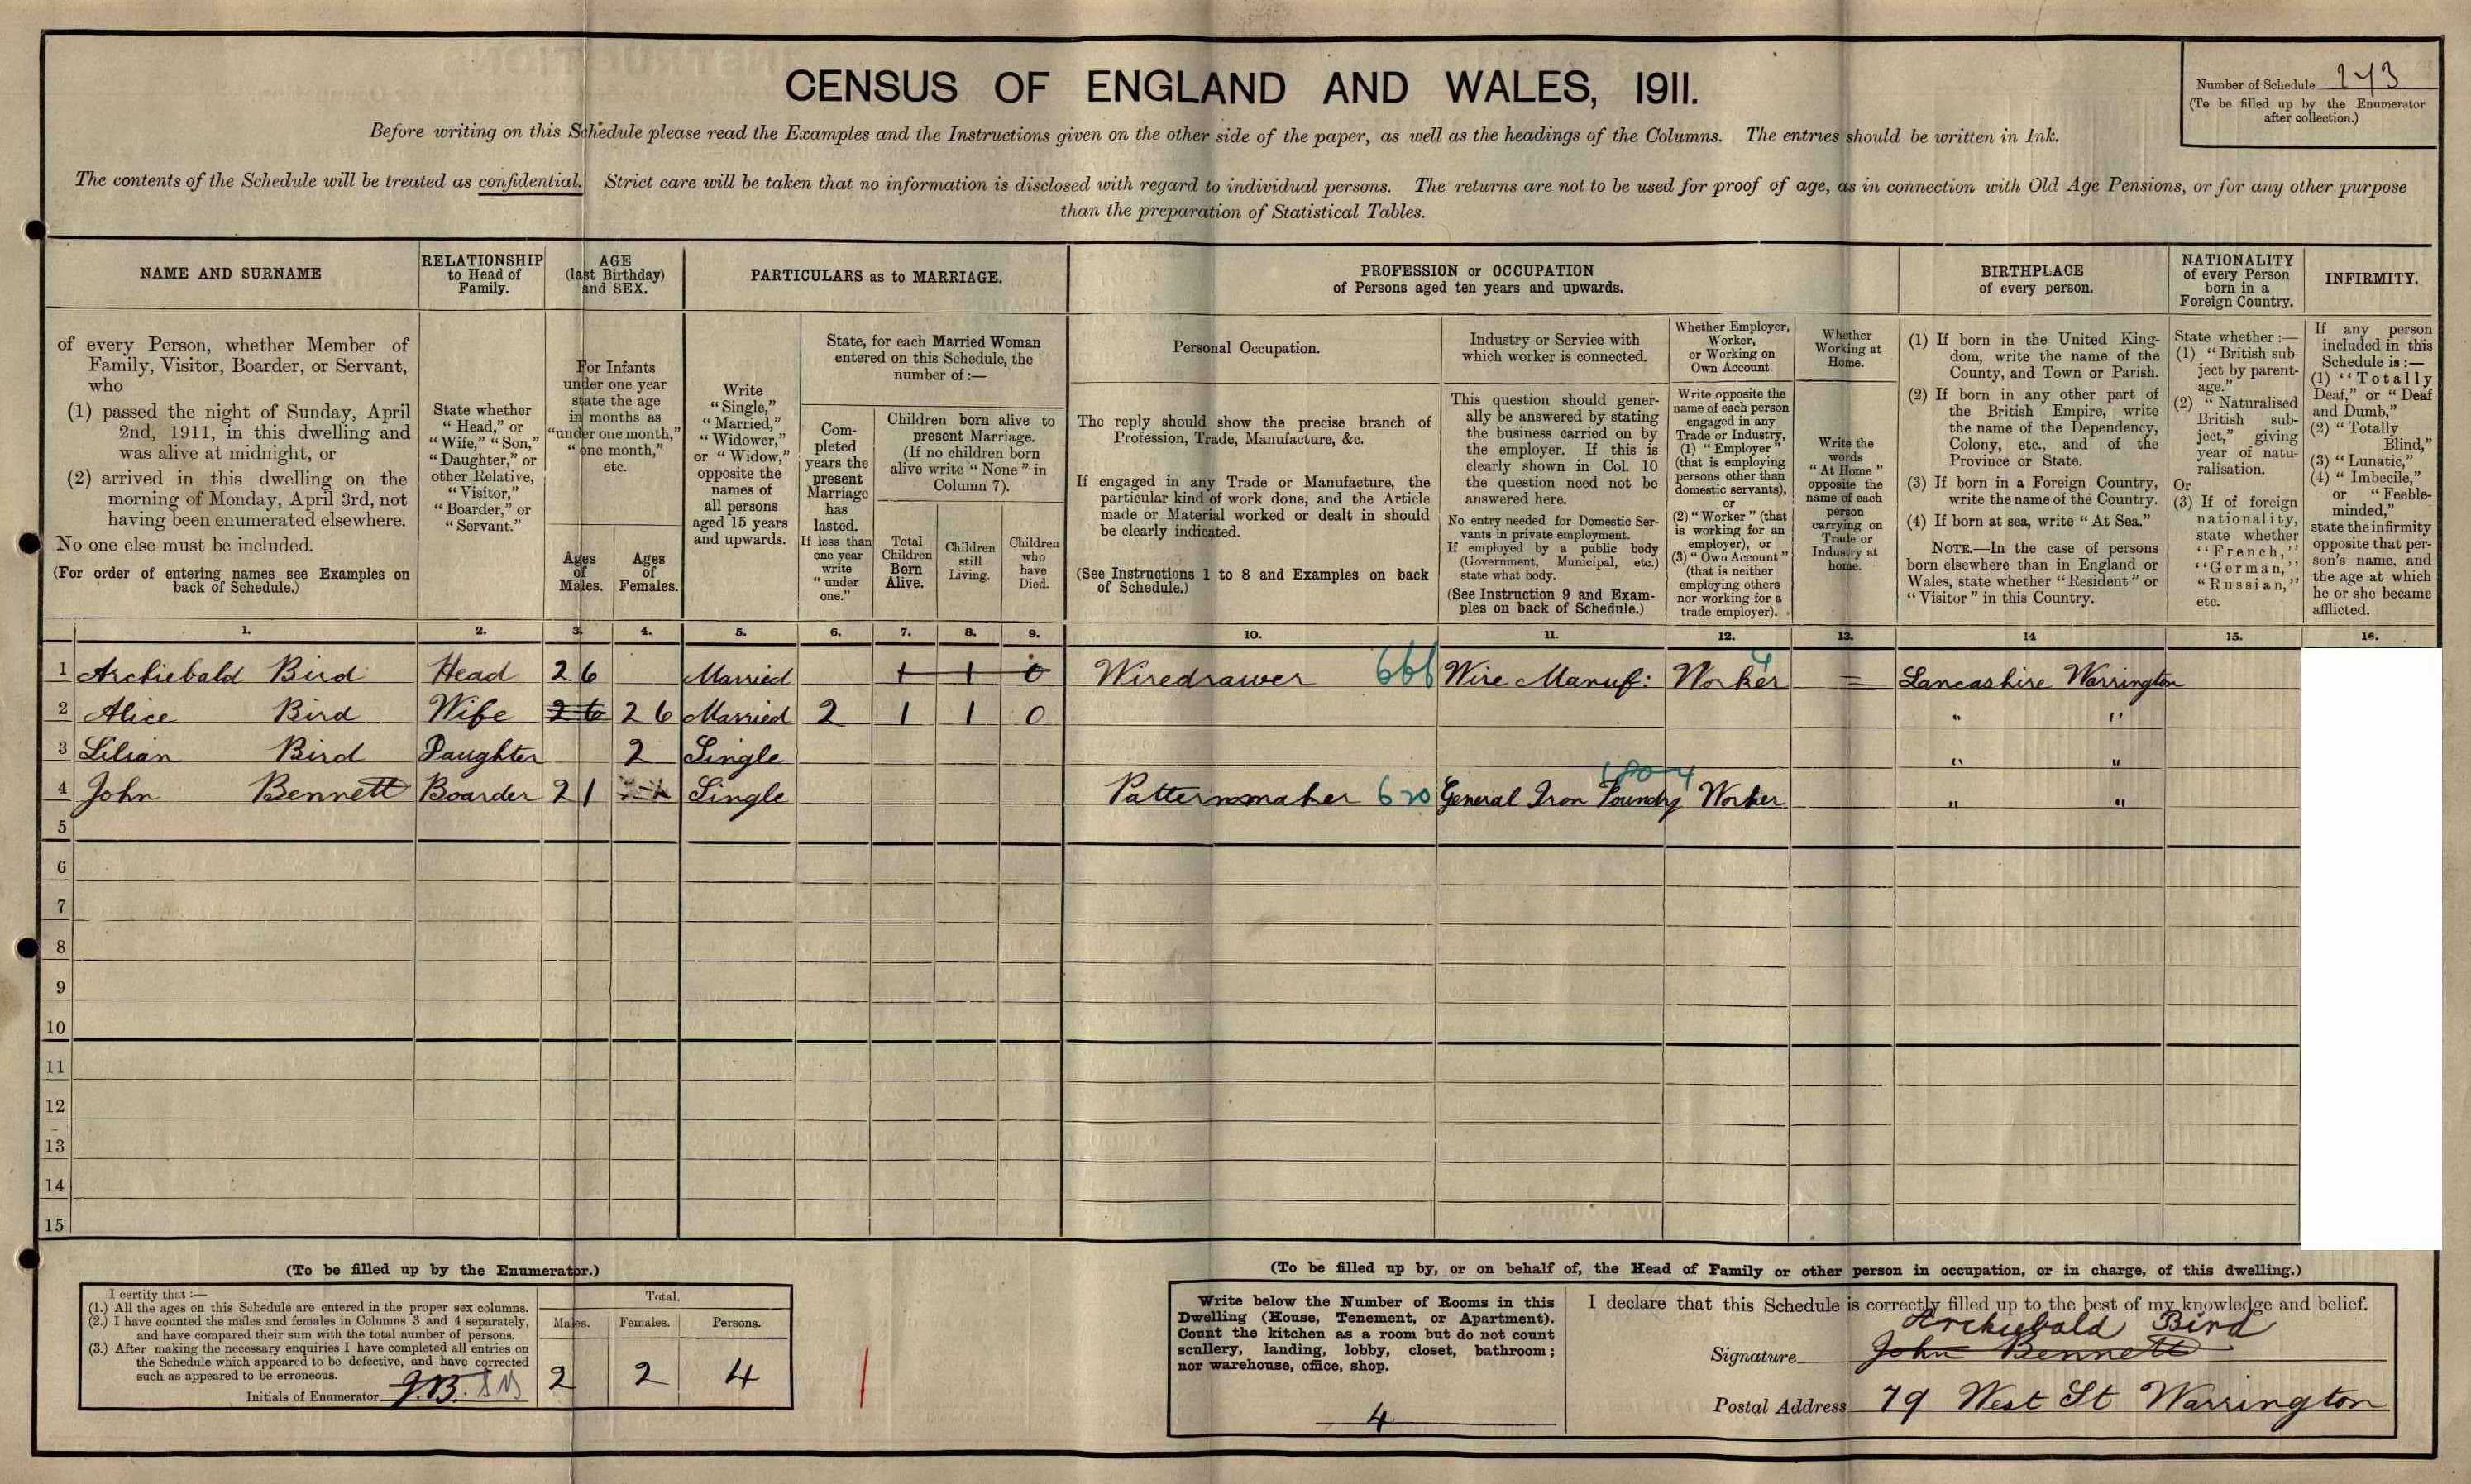 CENSUS OF ENGLAND AND WALES, 1911.
Number of Schedule 273
(To be filled up by the Enumerator
after collection.)
Before writing on this Schedule please read the Examples and the Instructions given on the other side of the paper, as well as the headings of the Columns. The entries should be written in Ink.
The contents of the Schedule will be treated as confidential. Strict care will be taken that no information is disclosed with regard to individual persons. The returns are not to be used for proof of age, as in connection with Old Age Pensions, or for any other purpose
than the preparation of Statistical Tables.
NAME AND SURNAME
of every Person, whether Member of
Family, Visitor, Boarder, or Servant,
who
(1) passed the night of Sunday, April
2nd, 1911, in this dwelling and
was alive at midnight, or
(2) arrived in this dwelling on the
morning of Monday, April 3rd, not
having been enumerated elsewhere.
No one else must be included.
(For order of entering names see Examples on
back of Schedule.)
RELATIONSHIP
to Head of
Family.
State whether
"Head," or
"Wife," "Son,"
"Daughter," or
other Relative,
"Visitor,"
"Boarder," or
"Servant."
AGE
(last Birthday)
and SEX.
For Infants
under one year
state the age
in months as
"under one month,"
"one month,"
etc.
Ages
of
Males.
Ages
of
Females.
PARTICULARS as to MARRIAGE.
Write
"Single,"
"Married,"
"Widower,"
or "Widow,"
opposite the
names of
all persons
aged 15 years
and upwards.
State, for each Married Woman
entered on this Schedule, the
number of :—
Com-
pleted
years the
present
Marriage
has
lasted.
If less than
one year
write
"under
one."
Children born alive to
present Marriage.
(If no children born
alive write "None" in
Column 7).
Total
Children
Born
Alive.
Children
still
Living.
Children
who
have
Died.
PROFESSION or OCCUPATION
of Persons aged ten years and upwards.
Personal Occupation.
The reply should show the precise branch of
Profession, Trade, Manufacture, &c.
If engaged in any Trade or Manufacture, the
particular kind of work done, and the Article
made or Material worked or dealt in should
be clearly indicated.
(See Instructions 1 to 8 and Examples on back
of Schedule.)
Industry or Service with
which worker is connected.
This question should gener-
ally be answered by stating
the business carried on by
the employer. If this is
clearly shown in Col. 10
the question need not be
answered here.
No entry needed for Domestic Ser-
vants in private employment.
If employed by a public body
(Government, Municipal, etc.)
state what body.
(See Instruction 9 and Exam-
ples on back of Schedule.)
Whether Employer,
Worker,
or Working on
Own Account.
Write opposite the
name of each person
engaged in any
Trade or Industry,
(1) "Employer"
(that is employing
persons other than
domestic servants),
or
(2) "Worker" (that
is working for an
employer), or
(3) "Own Account"
(that is neither
employing others
nor working for a
trade employer).
Whether
Working at
Home.
Write the
words
"At Home"
opposite the
name of each
person
carrying on
Trade or
Industry at
home.
BIRTHPLACE
of every person.
(1) If born in the United King-
dom, write the name of the
County, and Town or Parish.
(2) If born in any other part of
the British Empire, write
the name of the Dependency,
Colony, etc., and of the
Province or State.
(3) If born in a Foreign Country,
write the name of the Country.
(4) If born at sea, write "At Sea."
NOTE.—In the case of persons
born elsewhere than in England or
Wales, state whether "Resident" or
"Visitor" in this Country.
NATIONALITY
of every Person
born in a
Foreign Country.
State whether :—
(1) "British sub-
ject by parent-
age."
(2) "Naturalised
British sub-
ject," giving
year of natu-
ralisation.
Or
(3) If of foreign
nationality,
state whether
"French,"
"German,"
"Russian,"
etc.
INFIRMITY.
If any person
included in this
Schedule is :—
(1) "Totally
Deaf," or "Deaf
and Dumb,"
(2) "Totally
Blind,"
(3) "Lunatic,"
(4) "Imbecile,"
or "Feeble-
minded,"
state the infirmity
opposite that per-
son's name, and
the age at which
he or she became
afflicted.
1. 2. 3. 4. 5. 6. 7. 8. 9. 10. 11. 12. 13. 14 15. 16.
1 Archiebald Bird Head 26 Married 1 1 0 Wiredrawer 666 Wire Manuf: Worker 4 = Lancashire Warrington
2 Alice Bird Wife 26 26 Married 2 1 1 0 " "
3 Lilian Bird Daughter 2 Single " "
4 John Bennett Boarder 21 Single Patternmaker 620 General Iron Foundry Worker " "
5
6
7
8
9
10
11
12
13
14
15
(To be filled up by the Enumerator.)
I certify that :—
(1.) All the ages on this Schedule are entered in the proper sex columns.
(2.) I have counted the males and females in Columns 3 and 4 separately,
and have compared their sum with the total number of persons.
(3.) After making the necessary enquiries I have completed all entries on
the Schedule which appeared to be defective, and have corrected
such as appeared to be erroneous.
Initials of Enumerator J.B.
Total.
Males. Females. Persons.
2 2 4
(To be filled up by, or on behalf of, the Head of Family or other person in occupation, or in charge, of this dwelling.)
Write below the Number of Rooms in this
Dwelling (House, Tenement, or Apartment).
Count the kitchen as a room but do not count
scullery, landing, lobby, closet, bathroom;
nor warehouse, office, shop.
4
I declare that this Schedule is correctly filled up to the best of my knowledge and belief.
Archiebald Bird
Signature John Bennett
Postal Address 79 West St Warrington